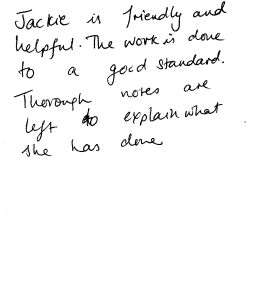 Jackie is friendly and
helpful. The work is done
to a good standard.
Thorough notes are
left to explain what
she has done